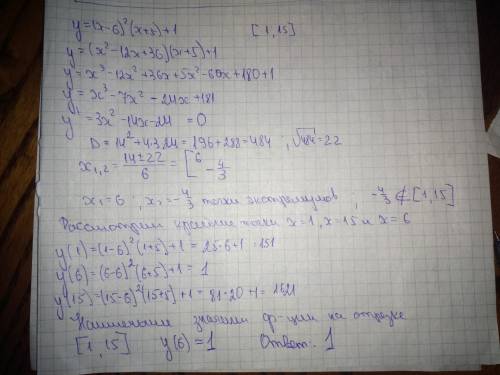 y=(x-6)²(x+5)+1 [1,15]
y=(x²-12x+36)(x+5)+1
y=x³-12x²+36x+5x²-60x+180+1
y=x³-7x²-24x+181
y'=3x²-14x-24=0
D=14²+4·3·24=196+288=484, √484=22
x₁,₂=(14±22)/6=[6 -4/3
x₁=6, x₂=-4/3 точки экстремумов, -4/3∉[1,15]
Рассмотрим крайние точки x=1, x=15 и x=6
y(1)=(1-6)²(1+5)+1=25·6+1=151
y(6)=(6-6)²(6+5)+1=1
y(15)=(15-6)²(15+5)+1=81·20+1=1621
Наименьшее значение ф-ции на отрезке
[1,15] y(6)=1 Ответ: 1